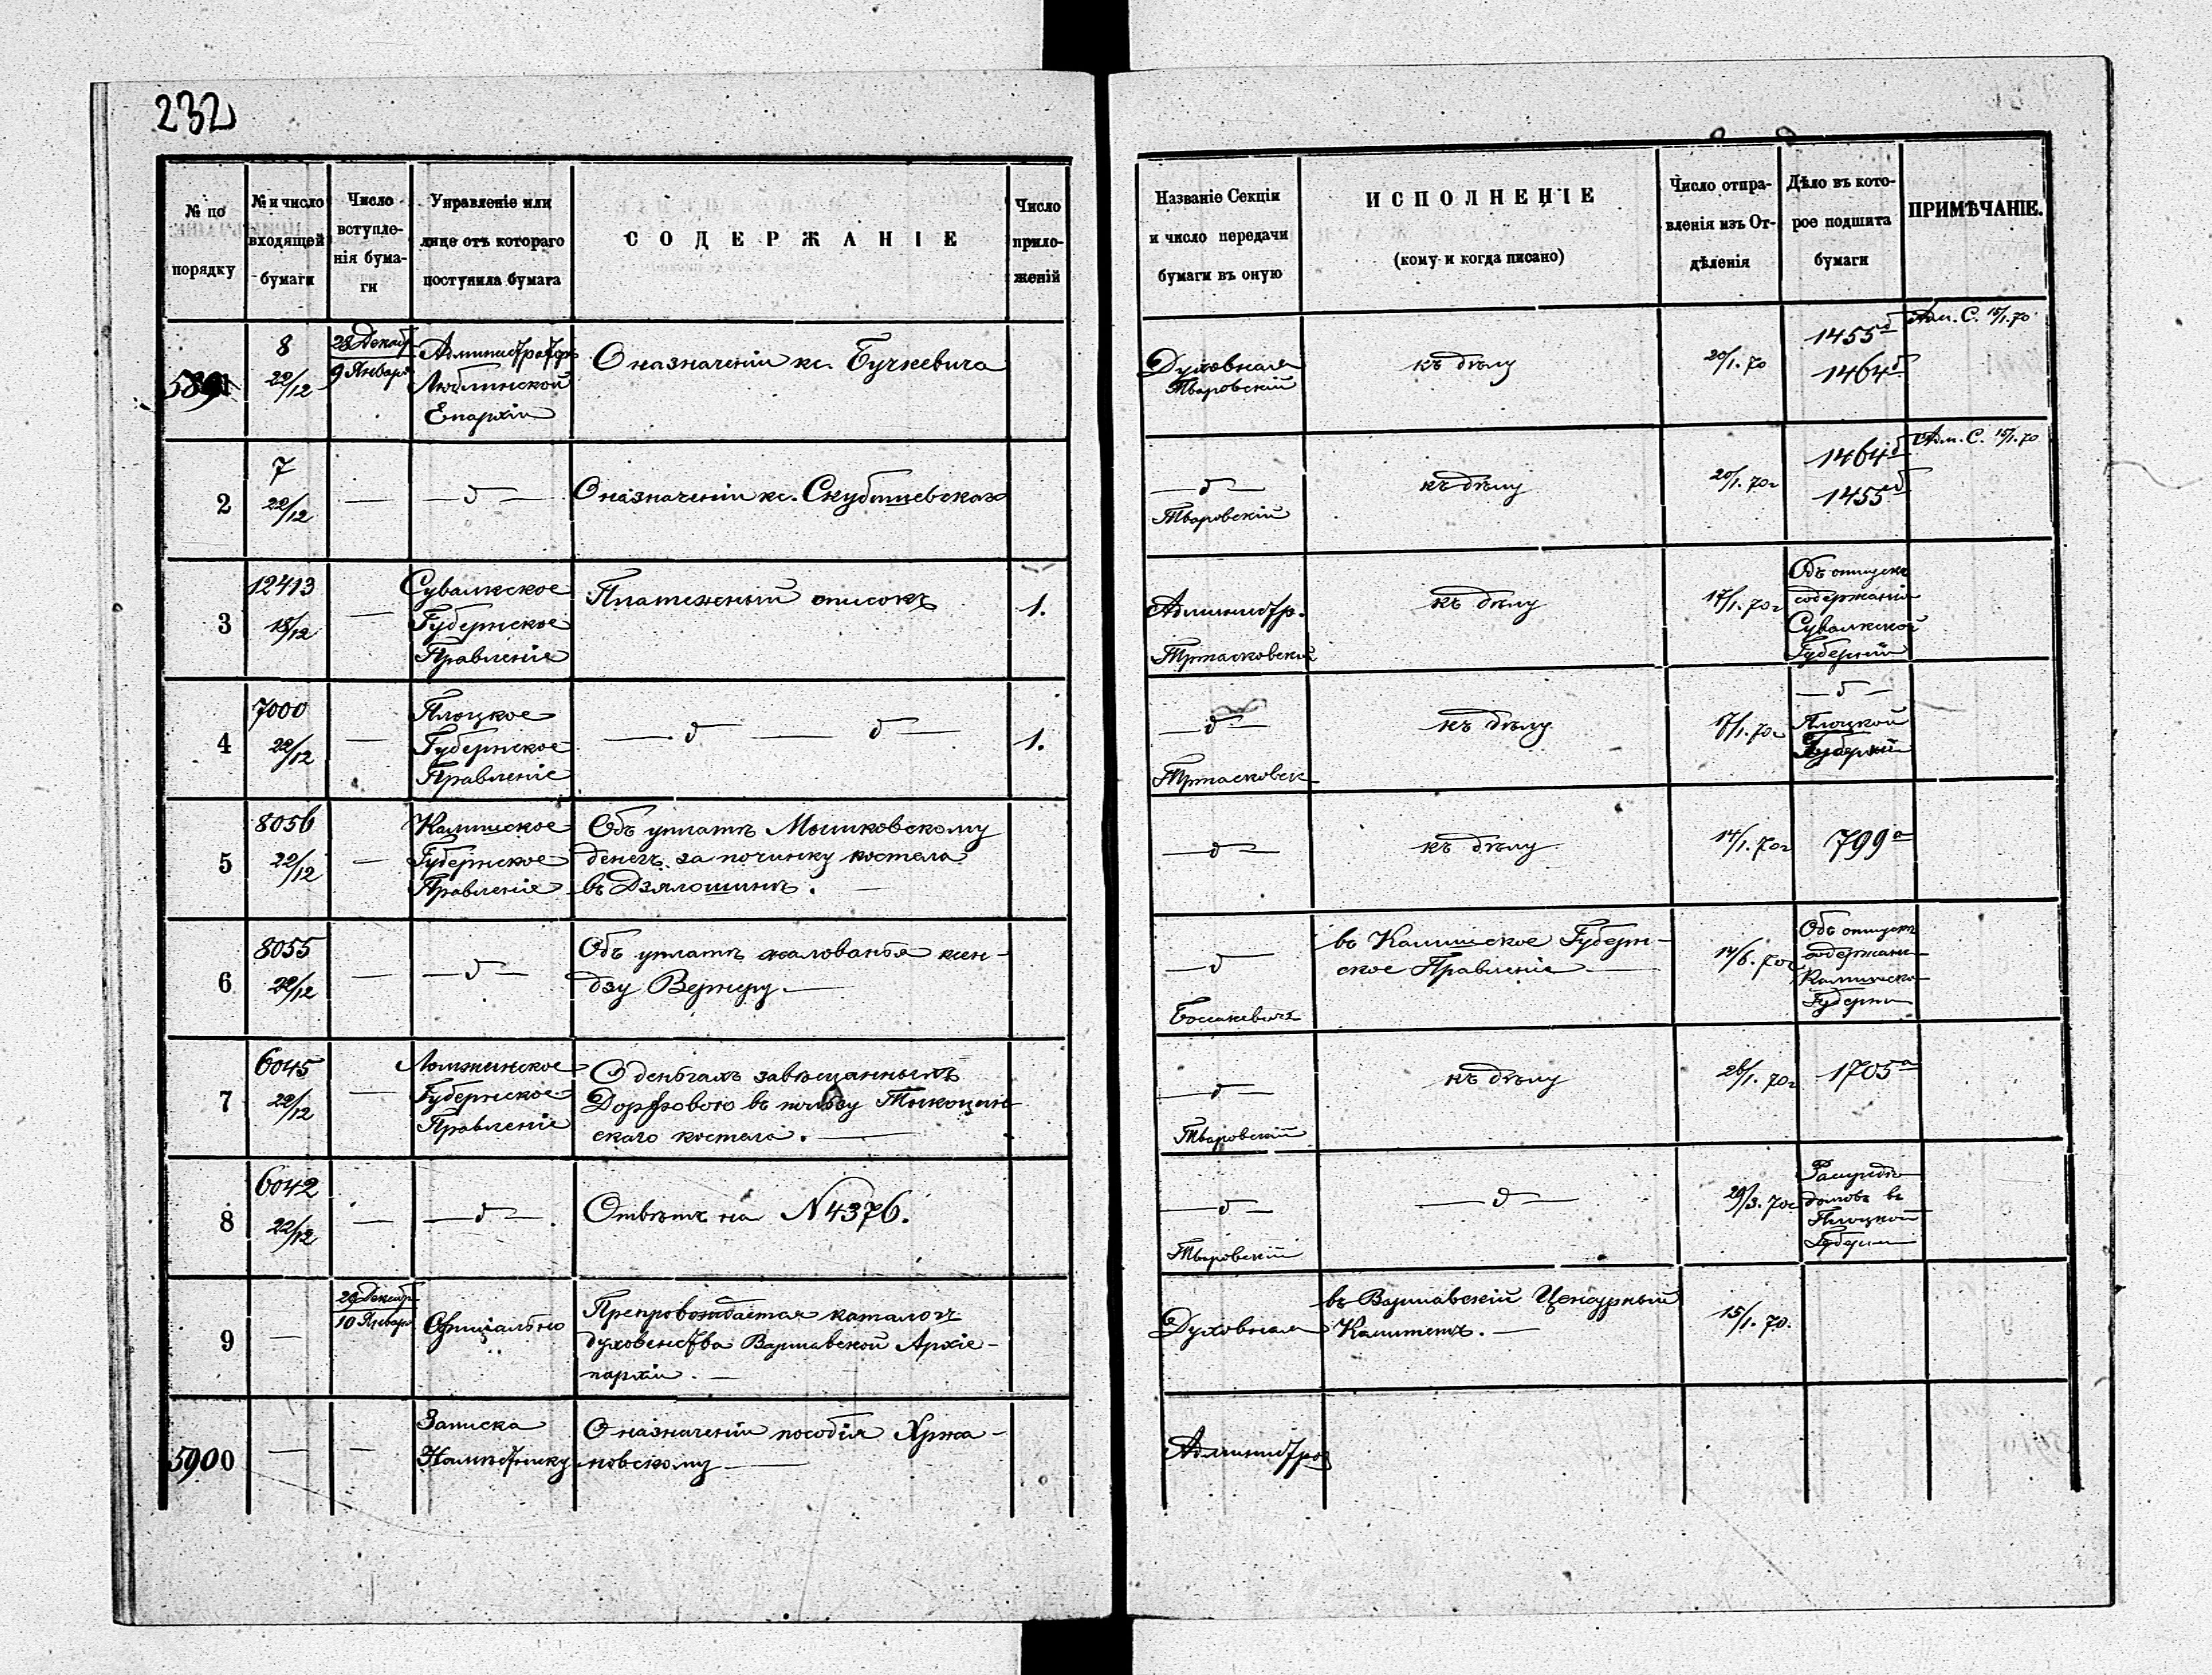 232
№ по порядку
№ и число входящей бумаги
Число вступленія бумаги
Управленіе или лице отъ котораго поступила бумага
СОДЕРЖАНІЕ
Число приложеній
Названіе Секціи и число передачи бумаги въ оную
ИСПОЛНЕНІЕ
(кому и когда писано)
Число отправленія изъ Отдѣленія
Дѣло въ которое подшита бумаги
ПРИМѢЧАНІЕ.
5891
8
22/12
28 Декаб.
9 Января
Администратор
Люблинской
Епархіи
О назначеніи кс. Бучкевича
Духовная
Тваровскій
къ дѣлу
20/1. 70
1455б
1464б
Адм. С. 15/1. 70
2
7
22/12
—
— д —
О назначеніи кс. Скубишевскаго
— д —
Тваровскій
къ дѣлу
20/1. 70г
1464б
1455б
Адм. С. 15/1. 70
3
12413
18/12
—
Сувалкское
Губернское
Правленіе
Платежный списокъ
1.
Администр.
къ дѣлу
17/1. 70г
Объ отпускѣ
содержанія
Сувалкской
Губерніи
4
7000
22/12
—
Плоцкое
Губернское
Правленіе
— д — — д —
1.
— д —
къ дѣлу
17/1. 70г
— д —
Плоцкой
Губерніи
5
8056
22/12
—
Калишское
Губернское
Правленіе
Объ уплатѣ Мышковскому
денегъ за починку костела
въ Дзялошинѣ. —
— д —
къ дѣлу
14/1. 70г
799а
6
8055
22/12
—
— д —
Объ уплатѣ жалованья ксен-
дзу Вернеру. —
— д —
въ Калишское Губерн-
ское Правленіе. —
14/6. 70г
Объ отпускѣ
содержанія
Калишской
Губерни
7
6045
22/12
—
Ломжинское
Губернское
Правленіе
О деньгахъ завѣщанныхъ
въ пользу Тыкоцин
скаго костела. —
— д —
Тваровскій
къ дѣлу
26/1. 70г
1705а
8
6042
22/12
—
— д — .
Отвѣтъ на N 4376.
— д —
Тваровскій
— д —
29/3. 70г
домовъ въ
Плоцкой
Губерни
9
—
29 Декабр
10 Января
Оффиціально
Препровождается каталогъ
духовенства Варшавской Архіе-
пархіи. —
Духовная
въ Варшавскій Цензурный
Комитетъ. —
15/1. 70.
5900
—
—
Записка
Намѣстнику
О назначеніи пособія Хржа-
новскому —
Администра